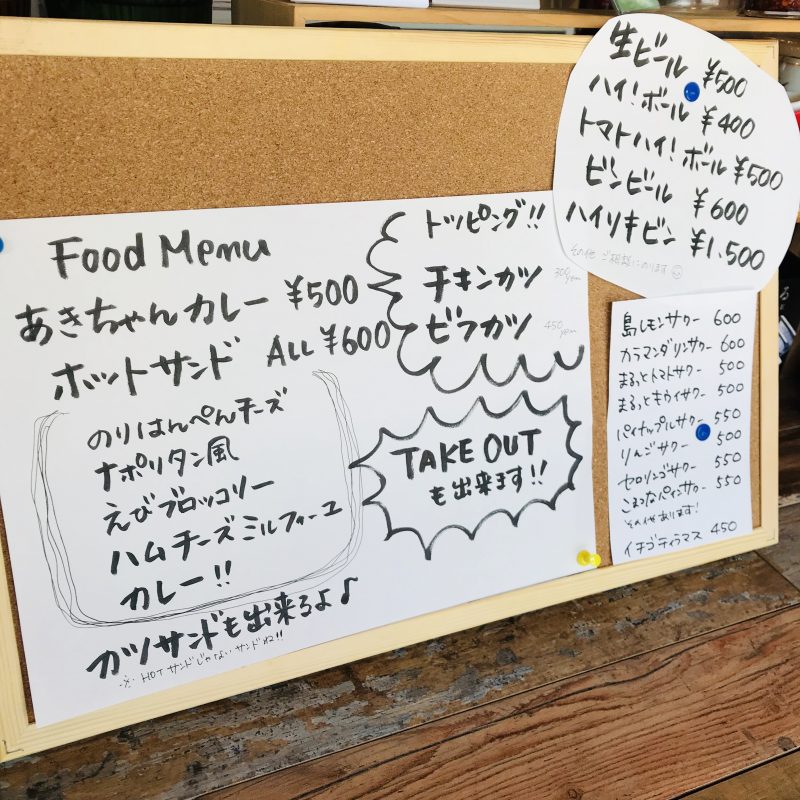 Food Menu
あきちゃんカレー ¥500
ホットサンド ALL ¥600
のりはんぺんチーズ
ナポリタン風
えびブロッコリー
ハムチーズミルフィーユ
カレー!!
カツサンドも出来るよ♪
※ HOTサンドじゃないサンドね!!
トッピング!!
チキンカツ 300yen
ビフカツ 450yen
TAKE OUT
も出来ます!!
生ビール ¥500
ハイ!ボール ¥400
トマトハイ!ボール ¥500
ビンビール ¥600
ハイリキビン ¥1.500
その他 ご相談にのります
島レモンサワー 600
カラマンダリンサワー 600
まるっとトマトサワー 500
まるっとキウイサワー 500
パイナップルサワー 550
りんごサワー 500
セロリンゴサワー 550
こまつなパインサワー 550
その他あります!
イチゴティラミス 450